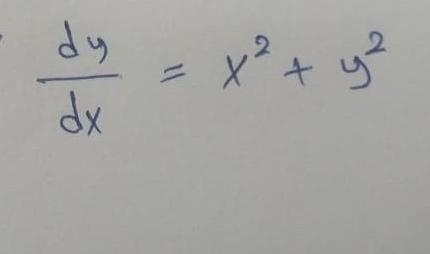 dy/dx = x² + y²